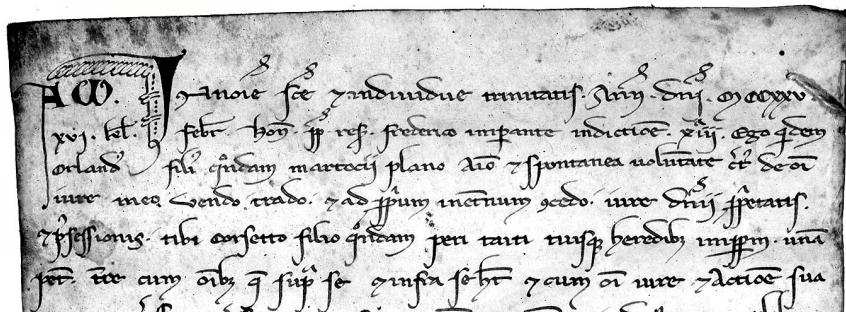 A ω. In noie sce et individue trinitatis. Ann. dni. MCCXXV.
XVI. kl. Febr. Hon. pp. res. Frederico imperante indictioe. XIII. Ego qdem
Orland filii qndam martocii plano Aio et spontanea voluntate de oi
iure meo vendo trado. et ad pprium in etnum concedo. iure dnii pprietatis.
et possessionis. tibi corsetto filio qndam peri tusq heredibz impptm. unam
pet. tre cum oibz q supra se et infra se ht et cum oi iure et Actioe sua